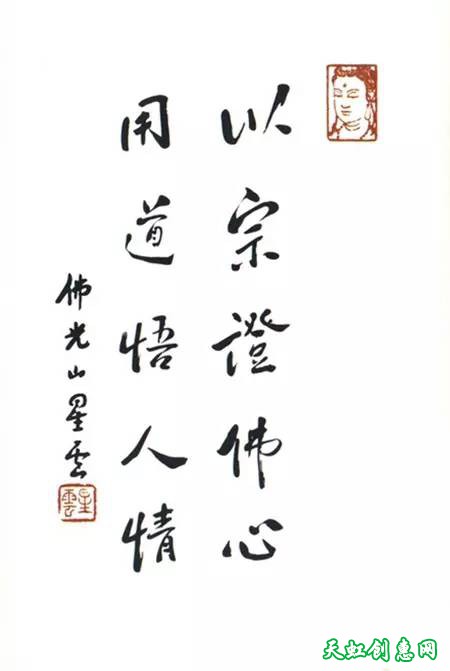 以宗證佛心
用道悟人情
佛光山星雲
星雲
天虹创惠网